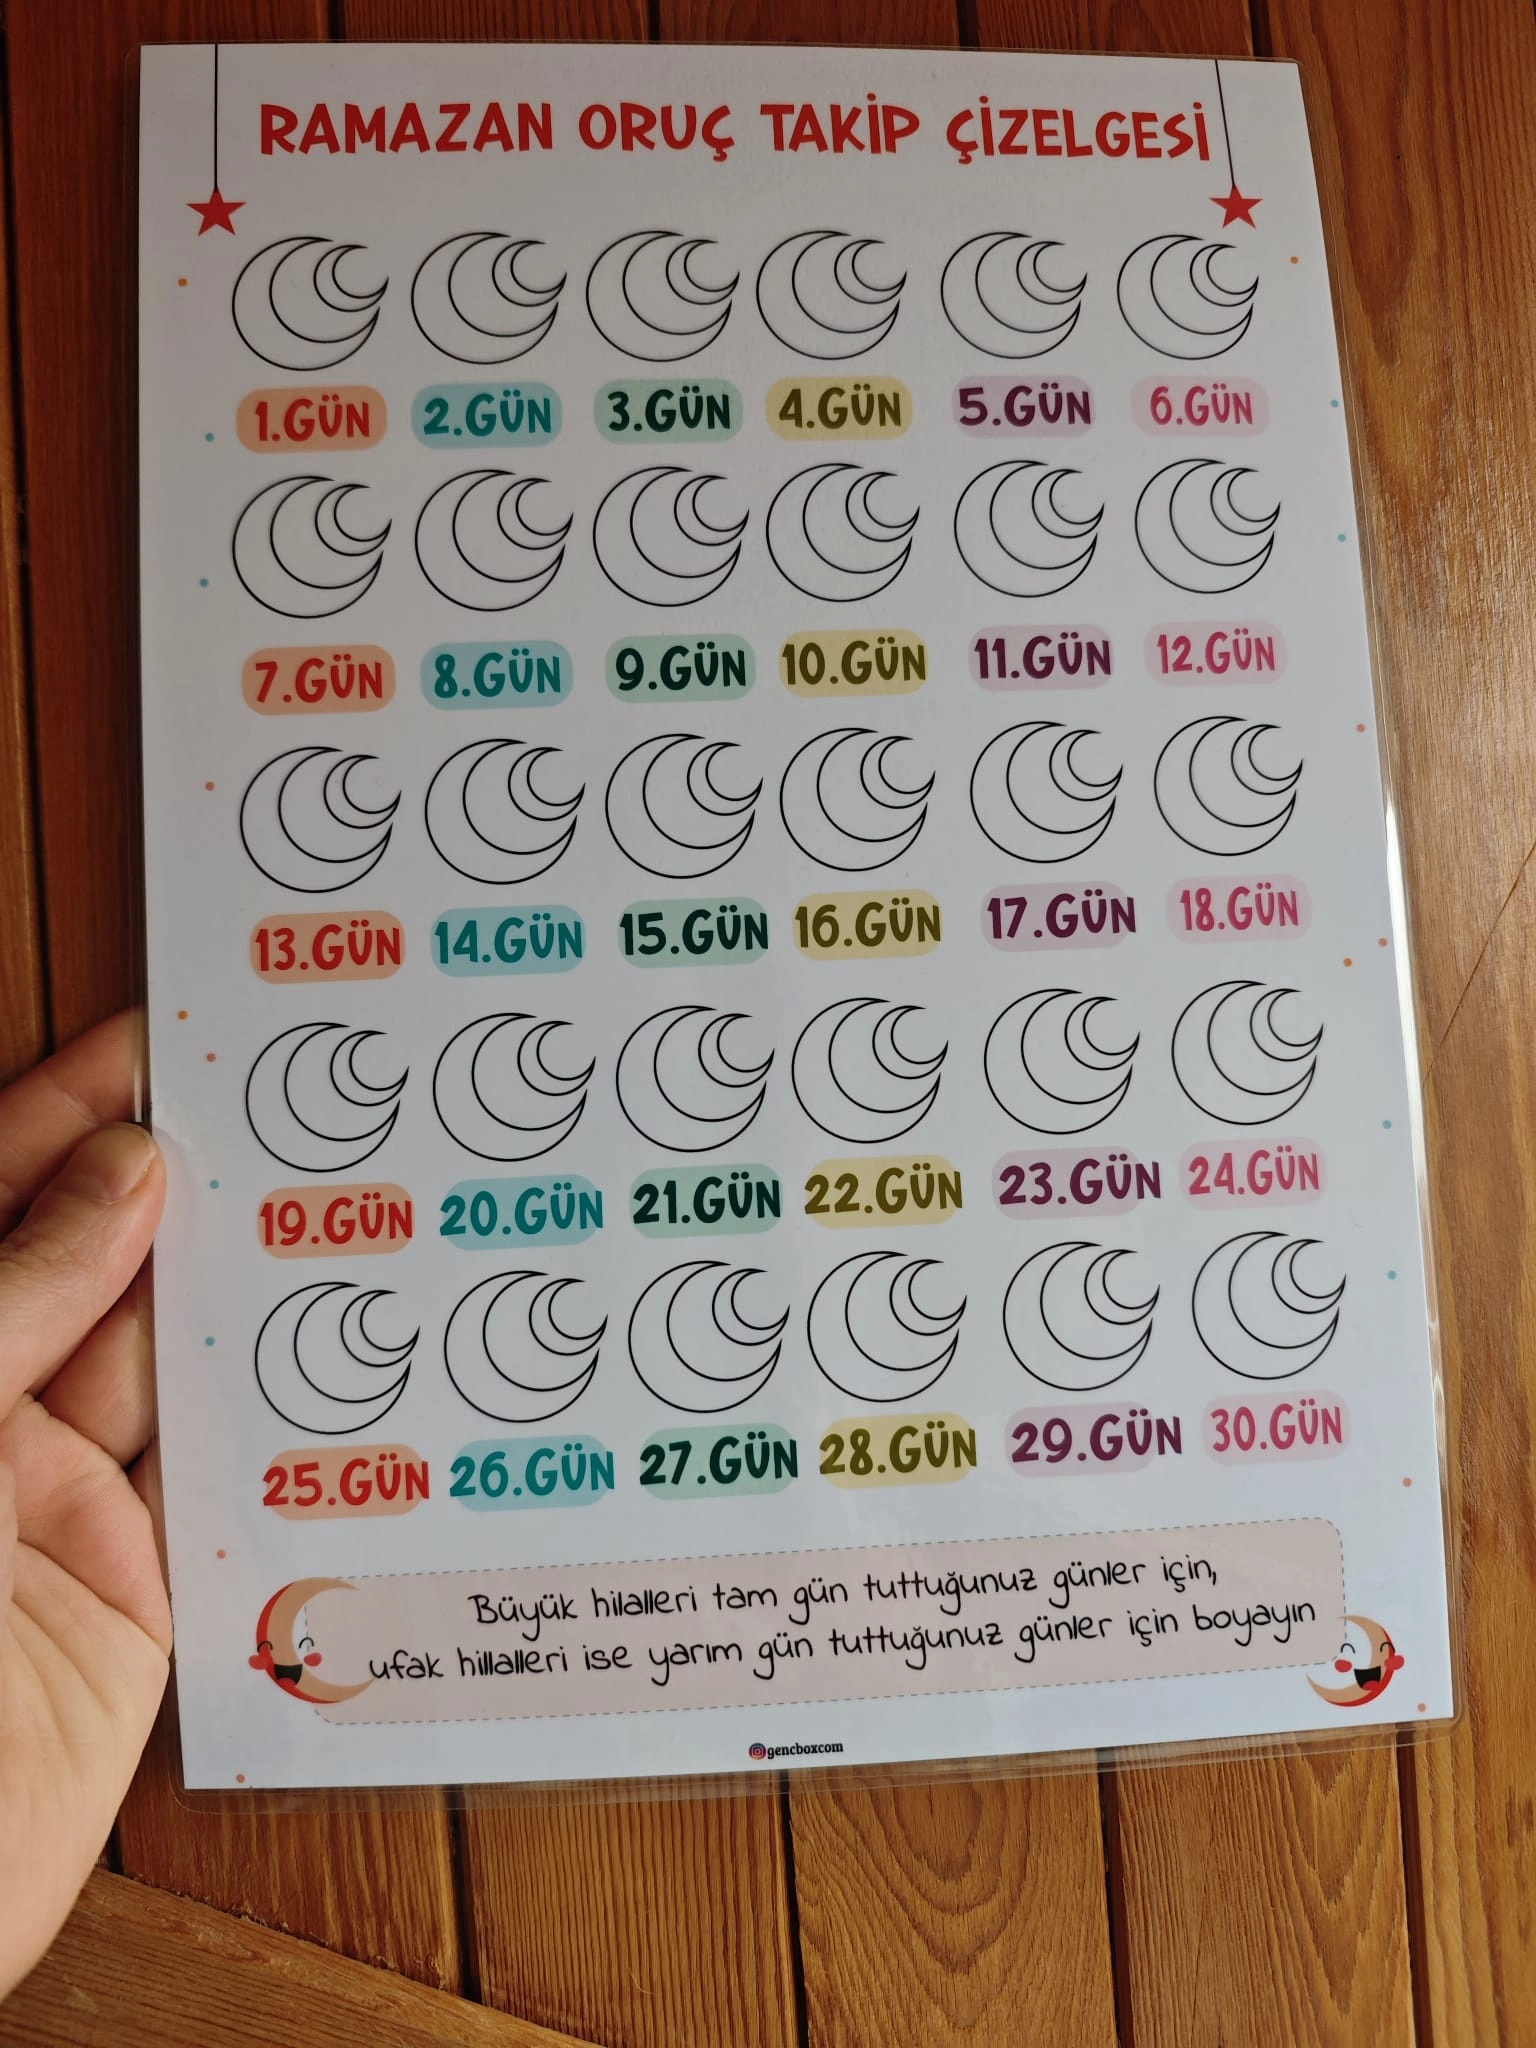 RAMAZAN ORUÇ TAKİP ÇİZELGESİ
1.GÜN 2.GÜN 3.GÜN 4.GÜN 5.GÜN 6.GÜN
7.GÜN 8.GÜN 9.GÜN 10.GÜN 11.GÜN 12.GÜN
13.GÜN 14.GÜN 15.GÜN 16.GÜN 17.GÜN 18.GÜN
19.GÜN 20.GÜN 21.GÜN 22.GÜN 23.GÜN 24.GÜN
25.GÜN 26.GÜN 27.GÜN 28.GÜN 29.GÜN 30.GÜN
Büyük hilalleri tam gün tuttuğunuz günler için,
ufak hillalleri ise yarım gün tuttuğunuz günler için boyayın
gencboxcom